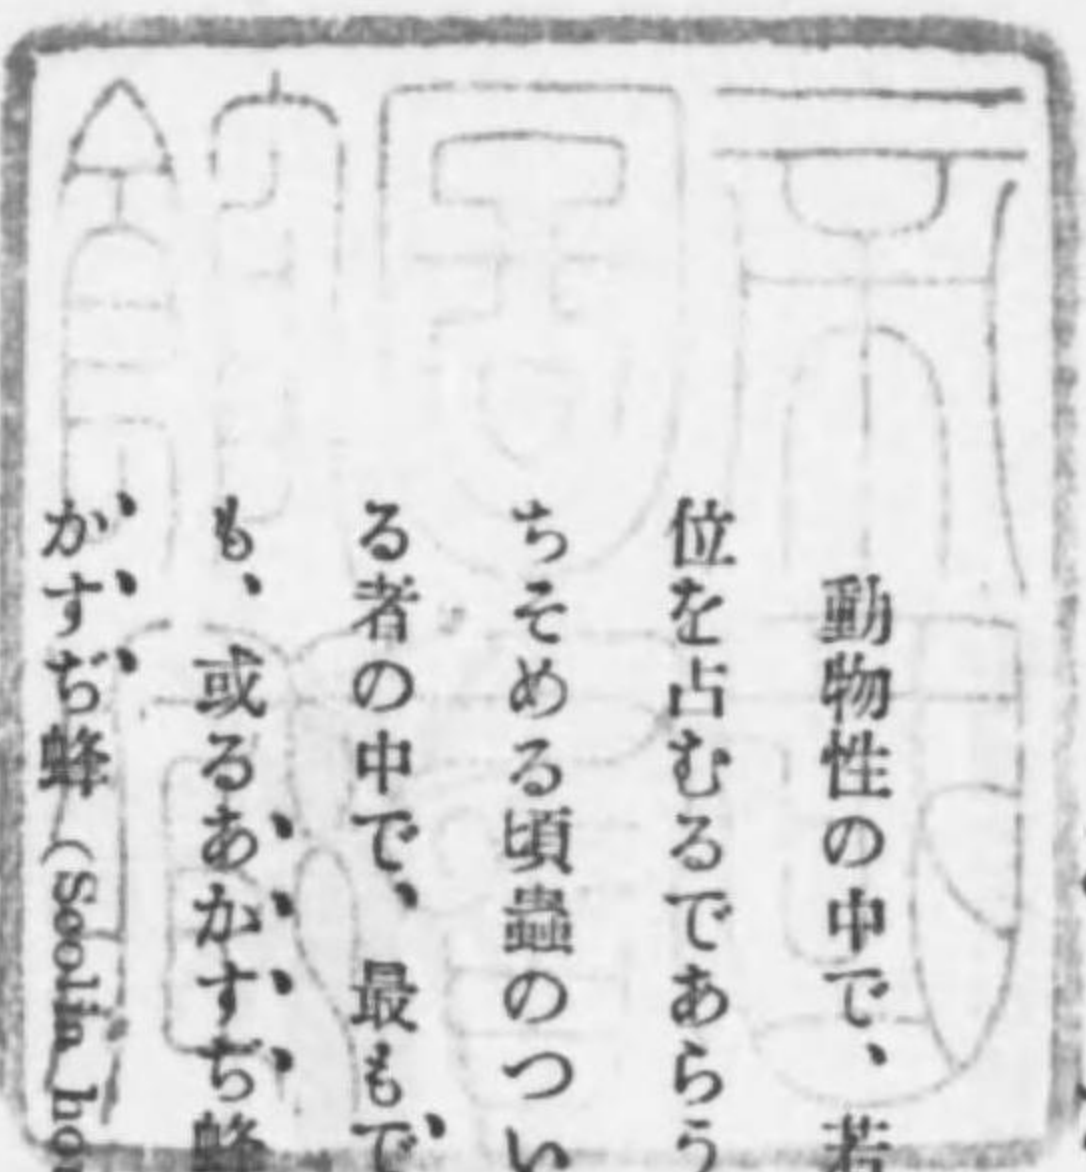 動物性の中で、若
位を占むるであらう
ちそめる頃蟲のつい
る者の中で、最もで
も、或るあかすぢ蜂
かすぢ蜂（Scolia ho